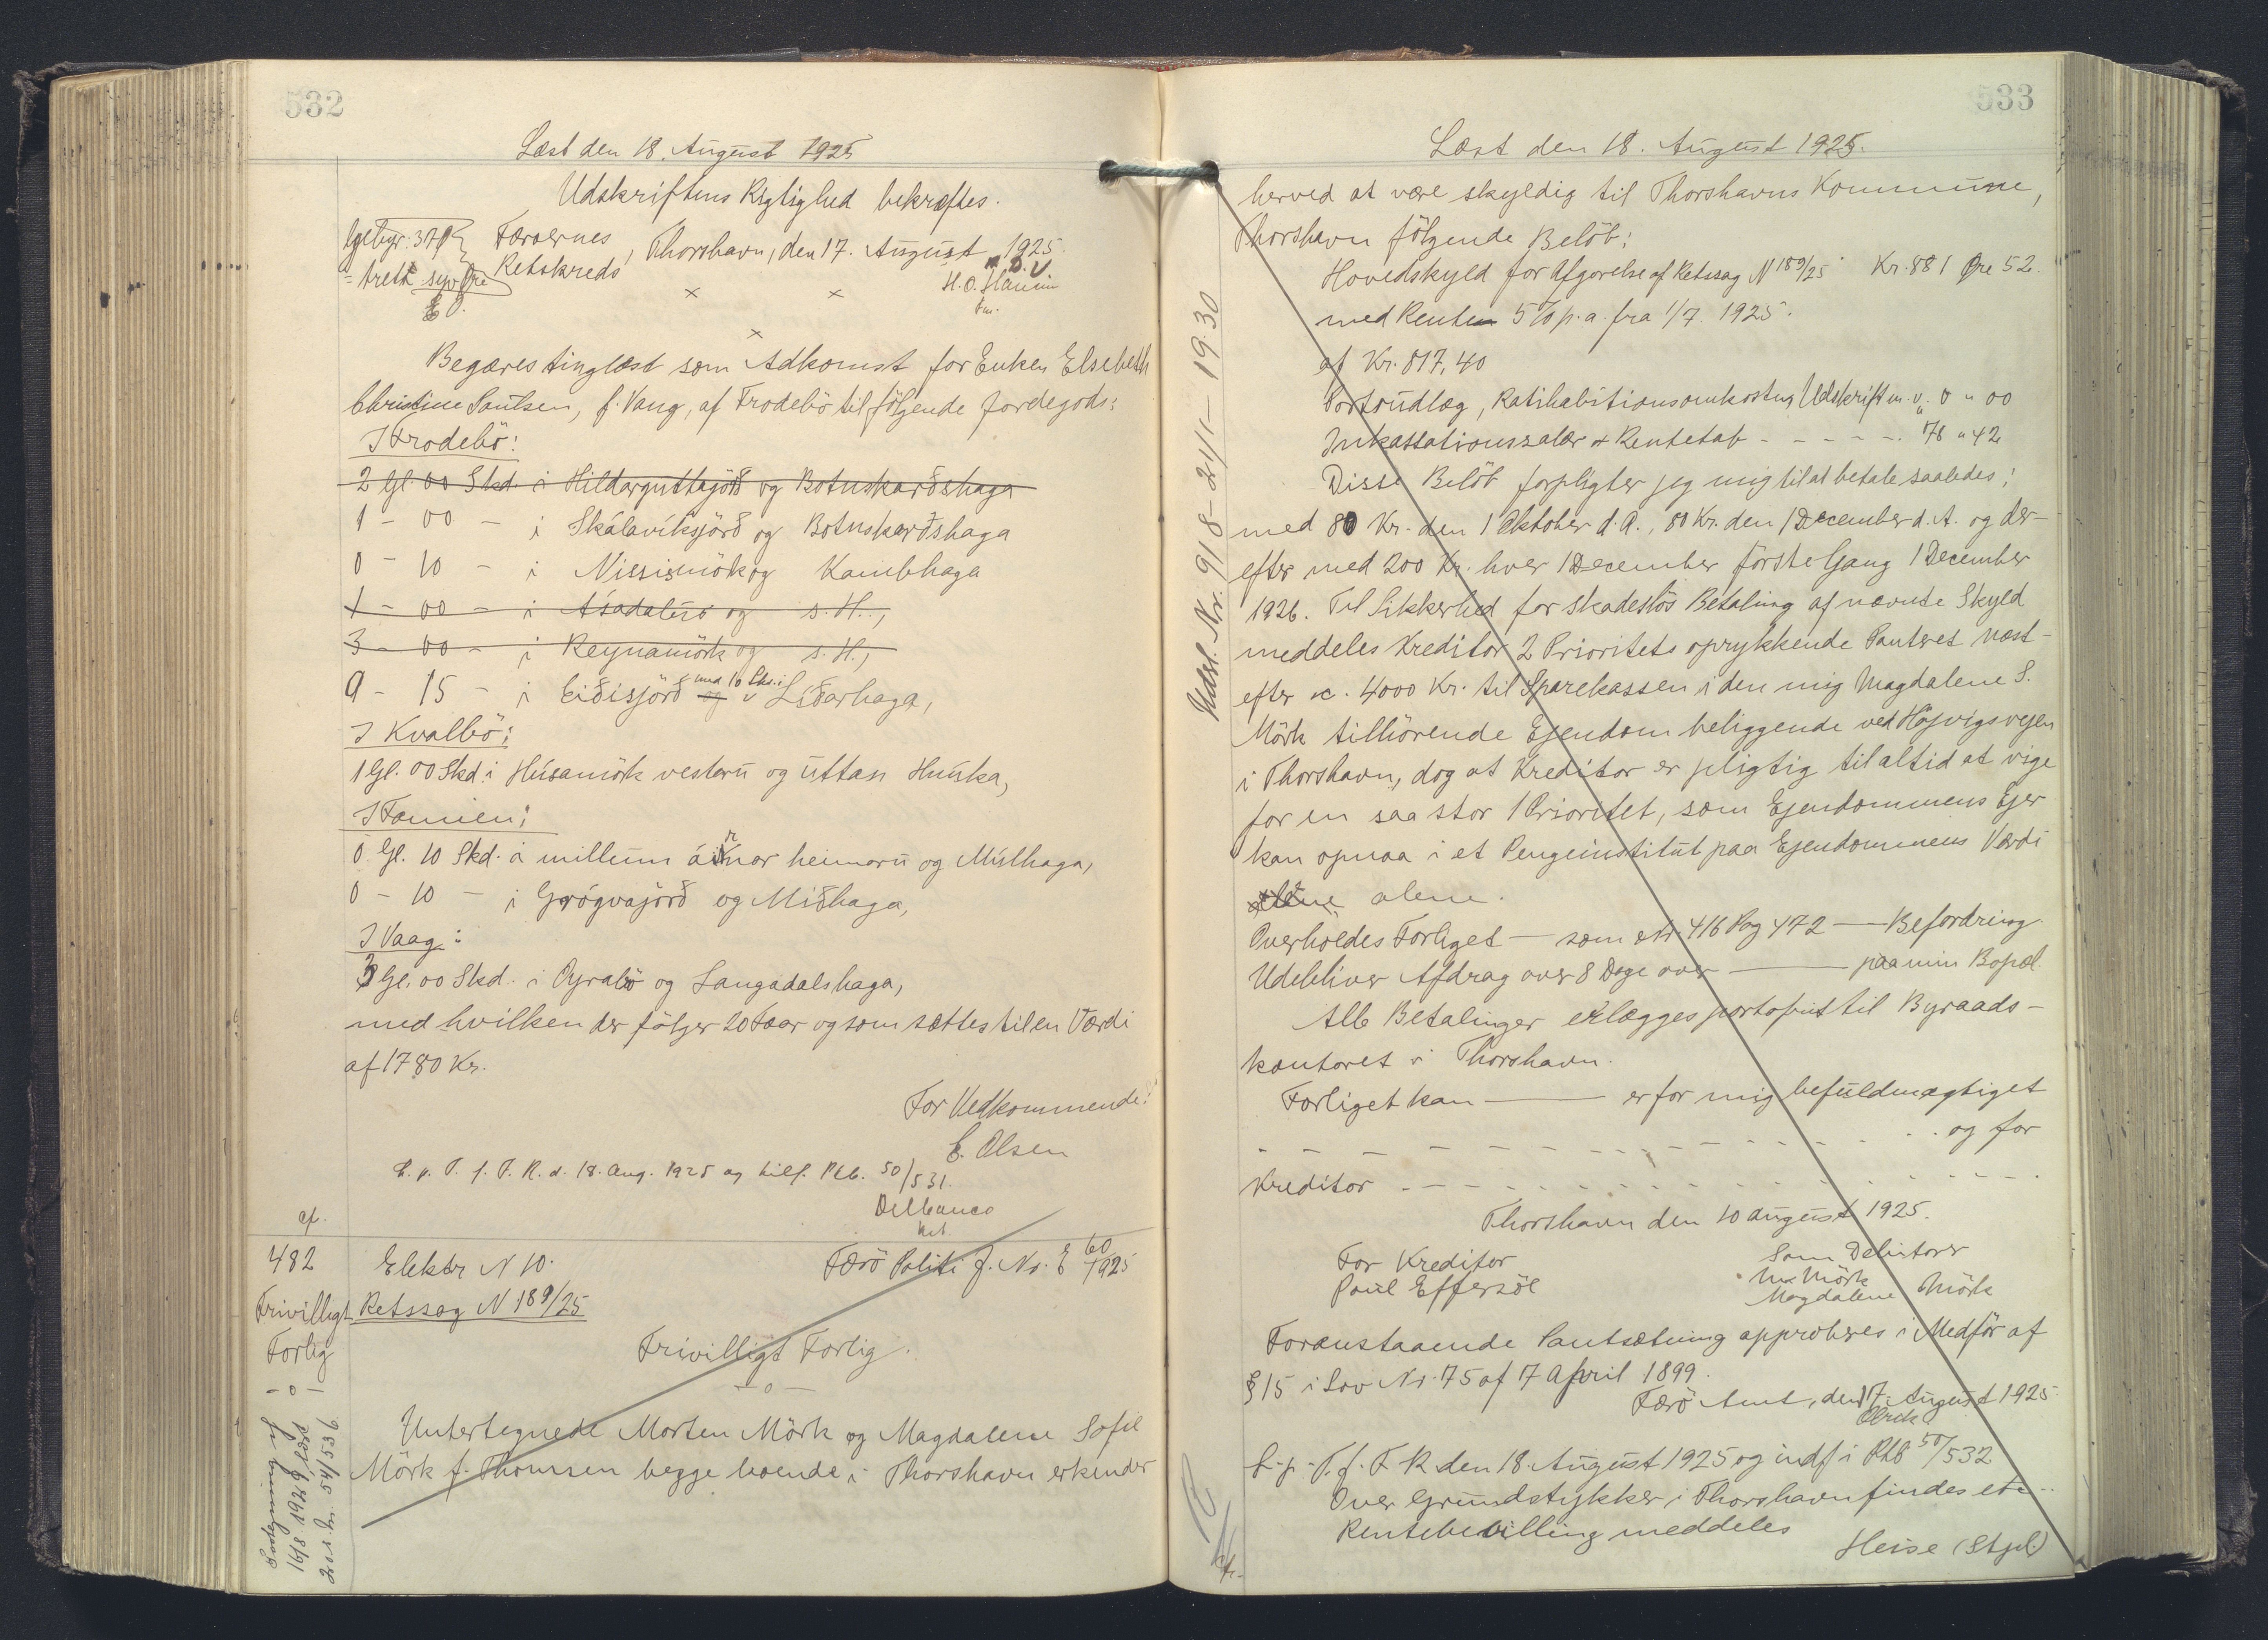 532
Læst den 18. August 1925
Udskriftens Rigtighed bekræftes.
Gebyr: 37 Ø Færøernes
= treti syv Øre Retskreds, Thorshavn, den 17. August 1925
E O. H.O. Hansen
Fm.
Begæres tinglæst som Adkomst for Enken Elsebeth
Christine Poulsen, f. Vang, af Frodebö til følgende Jordegods:
I Frodebö:
2 Gl. 00 Skd. i Hildarguttajörð og Botnskarðshaga
1 - 00 - i Skálavíksjörð og Botnskarðshaga
0 - 10 - i Nissismörk og Kambhaga
1 - 00 - i Ásadalsrö og s. H.,
3 - 00 - i Reynamörk og s. H.,
9 - 15 - i Eiðisjörð og med 10 Sk. i Líðarhaga,
I Kvalbö:
1 Gl. 00 Skd. i Húsamörk vestaru og úttan Húska,
I Famien:
0 Gl. 10 Skd. á millum áirnar heimaru og Múlhaga,
0 - 10 - i Grógvajörð og Miðhaga,
I Vaag:
3 Gl. 00 Skd. i Oyrabö og Langadalshaga,
med hvilken der følger 20 Faar og som sættes til en Værdi
af 1780 Kr.
For Vedkommende:
E. Olsen
L. p. T. f. F. R. d. 18. Aug. 1925 og tilf. Ptb. 50/531.
Delbanco
kst.
af.
482 Elektr N 10. Færö Politi J. Nr. E 60/1925
Frivilligt Retssag N 189/25
Forlig Frivilligt Forlig.
- o - - o -
Untertegnede Morten Mörk og Magdalene Sofie
Mörk f. Thomsen begge boende i Thorshavn erkender
533
Læst den 18. August 1925.
herved at være skyldig til Thorshavns Kommune,
Thorshavn følgende Belöb:
Hovedskyld for Afgørelse af Retssag N 189/25 Kr. 881 Øre 52
med Renten 5 % p. a. fra 1/7. 1925.
af Kr. 817,40
Portoudlæg, Ratihabitionsomkostng Udskrift m. v. " 0 " 00
Inkassationssalær & Rentetab - - - - - . 78 " 42
Disse Belöb forpligter jeg mig til at betale saaledes:
med 80 Kr. den 1 Oktober d. A., 80 Kr. den 1 December d. A. og der-
efter med 200 Kr. hver 1 December förste Gang 1 December
1926. Til Sikkerhed for skadeslös Betaling af nævnte Skyld
meddeles Kreditor 2 Prioritets oprykkende Panteret næst-
efter c. 4000 Kr. til Sparekassen i den mig Magdalene S.
Mörk tilhörende Ejendom beliggende ved Højvigsvejen
i Thorshavn, dog at Kreditor er pligtig til altid at vige
for en saa stor 1 Prioritet, som Ejendommens Ejer
kan opnaa i et Pengeinstitut paa Ejendommens Værdi
alene.
Overholdes Forliget — som Nr. 416 Pag 472 — Befordring
Udebliver Afdrag over 8 Dage over — paa min Bopæl.
Alle Betalinger erlægges portofrit til Byraads-
kontoret i Thorshavn.
Forliget kan — er for mig befuldmægtiget
- - - - - - - - - og for
Kreditor - - - - - - - - -
Thorshavn den 10 august 1925.
For Kreditor Som Debitorer
Poul Effersöe M Mörk
Magdalene Mörk
Foranstaaende Pantsætning approberes i Medför af
§ 15 i Lov Nr. 75 af 7 April 1899.
Færö Amt, den 17. August 1925
Olrik
L. p. T. f. F. R den 18. August 1925 og indf i Ptb 50/532
Over Grundstykker i Thorshavn findes etc..
Rentebevilling meddeles
Heise (Stpl.)
Udsl. Nr. 918 - 21/1 - 19.30